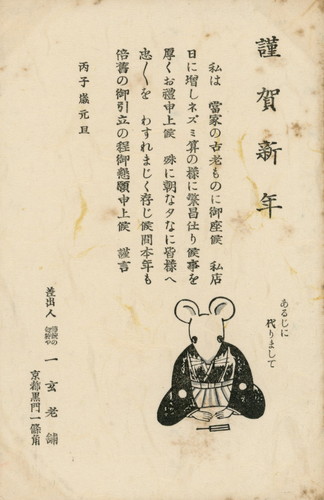 謹賀新年
私は 當家の古老ものに御座候 私店
日に増しネズミ算の様に繁昌仕り候事を
厚くお禮申上候 殊に朝な夕なに皆様へ
忠〱を わすれまじく存じ候間本年も
倍舊の御引立の程御懇願申上候 謹言
丙子歳元旦
あるじに
代りまして
差出人
一玄老舗
京都黒門一條角